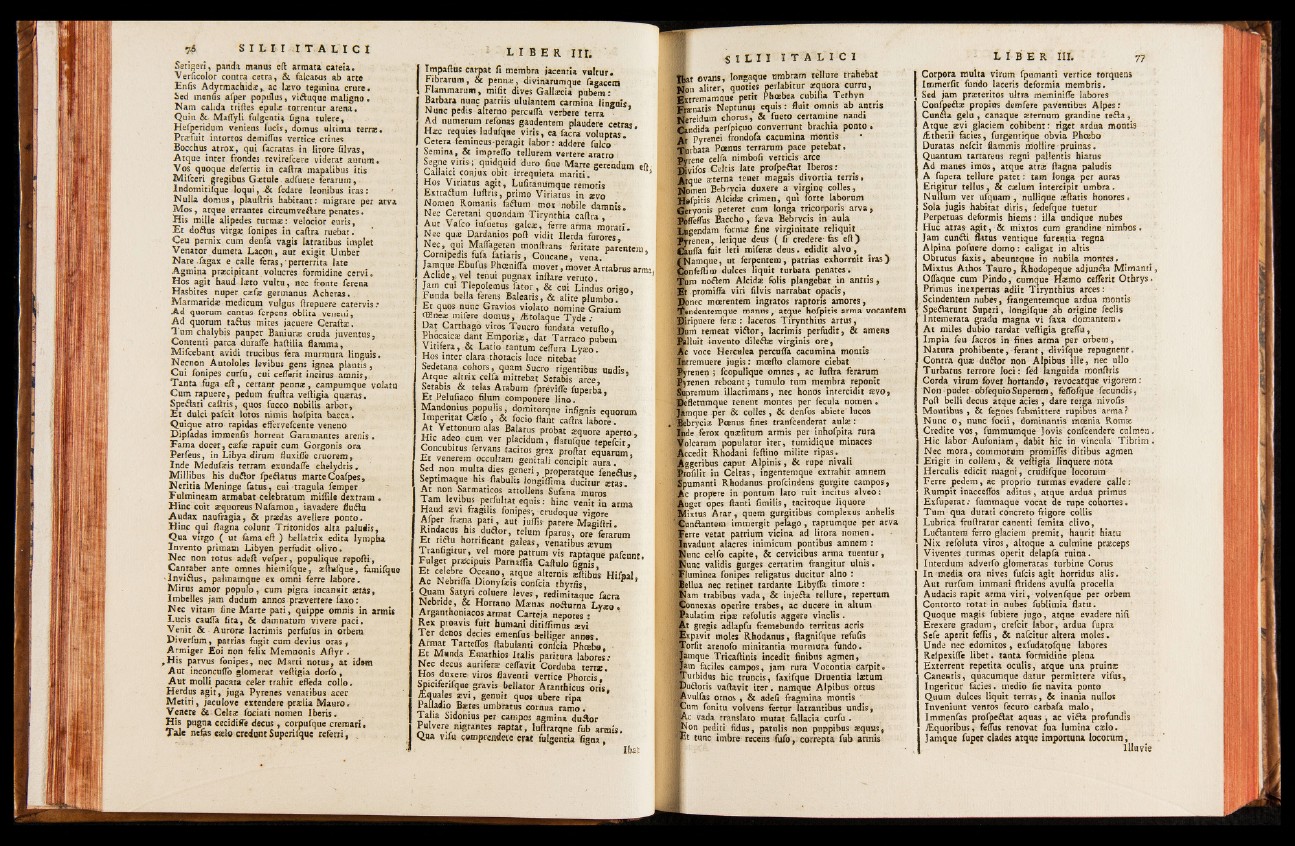 76 SILII ITALICI
Setigeri, panda manus eſt armata cateia.
Verſicolor contra cetra, & falcatus ab arte
Enſis Adyrmachidæ, ac lævo tegmina crure.
Sed menſis aſper populus, victuque maligno.
Nam calida triſtes epulæ torrentur arena.
Quin & Maſſyli fulgentia ſigna tulere,
Heſperidum veniens lucis, domus ultima terræ.
Præfuit intortos demiſſus vertice crines
Bocchus atrox, qui ſacratas in litore ſilvas,
Atque inter frondes revireſcere viderat aurum.
Vos quoque deſertis in caſtra mapalibus itis
Miſceri gregibus Gætulæ adſuete ferarum,
Indomitiſque loqui, & ſedare leonibus iras:
Nulla domus, plauſtris habitant: migrare per arva
Mos, atque errantes circumvectare penates.
His mille alipedes turmæ: velocior euris,
Et doctus virgæ ſonipes in caſtra ruebat.
Ceu pernix cum denſa vagis latratibus implet
Venator dumeta Lacon, aut exigit Umber
Nare ſagax e calle feras, perterrita late
Agmina præcipitant volucres formidine cervi.
Hos agit haud læto vultu, nec fronte ſerena
Hasbites nuper cæſæ germanus Acheras.
Marmaridæ medicum vulgus ſtrepuere catervis:
Ad quorum cantus ſerpens oblita veneni,
Ad quorum tactus mites jacuere Ceraſtæ.
Tum chalybis pauper Baniuræ cruda juventus,
Contenti parca duraſſe haſtilia flamma,
Miſcebant avidi trucibus fera murmura linguis.
Necnon Autololes levibus gens ignea plantis,
Cui ſonipes curſu, cui ceſſarit incitus amnis,
Tanta fuga eſt, certant pennæ, campumque volatu
Cum rapuere, pedum fruſtra veſtigia quæras.
Spectati caſtris, quos ſucco nobilis arbor,
Et dulci paſcit lotos nimis hoſpita bacca.
Quique atro rapidas efferveſcente veneno
Dipſadas immenſis horrent Garamantes arenis.
Fama docet, cæſæ rapuit cum Gorgonis ora
Perſeus, in Libya dirum fluxiſſe cruorem,
Inde Meduſæis terram exundaſſe chelydris.
Millibus his ductor ſpectatus marte Coaſpes,
Neritia Meninge ſatus, cui tragula ſemper
Fulmineam armabat celebratum miſſile dextram.
Hinc coit æquoreus Naſamon, iavadere fluctu
Audax naufragia, & prædas avellere ponto.
Hinc qui ſtagna colunt Tritonidos alta paludis,
Qua virgo ( ut fama eſt ) bellatrix edita lympha
Invento primam Libyen perfudit olivo.
Nec non totus adeſt veſper, populique repoſti,
Cantaber ante omnes hiemiſque, æſtuſque, famiſque
Invictus, palmamque ex omni ferre labore.
Mirus amor populo, cum pigra incanuit ætas,
Imbelles jam dudum annos prævertere ſaxo:
Nec vitam ſine Marte pati, quippe omnis in armis
Lucis cauſſa ſita, & damnatum vivere paci.
Venit & Auroræ lacrimis perfuſus in orbem
Diverſum, patrias fugit cum devius oras,
Armiger Eoi non felix Memnonis Aſtyr.
His parvus ſonipes, nec Marti notus, at idem
Aut inconcuſſo glomerat veſtigia dorſo,
Aut molli pacata celer trahit eſſeda collo.
Herdus agit, juga Pyrenes venatibus acer
Metiri, jaculove extendere prælia Mauro.
Venere & Celtæ ſociati nomen Iberis.
His pugna cecidiſſe decus, corpuſque cremari.
Tale nefas cælo credunt Superiſque referri,
LIBER III.
Impaſtus carpat ſi membra jacentia vultur.
Fibrarum, & pennæ, divinarumque ſagacem
Flammarum, miſit dives Gallæcia pubem:
Barbara nunc patriis ululantem carmina linguis,
Nunc pedis alterno percuſſa verbere terra
Ad numerum reſonas gaudentem plaudere cetras.
Hæc requies luduſque viris, ea ſacra voluptas.
Cetera femineus peragit labor: addere ſulco
Semina, & impreſſo tellurem vertere aratro
Segne viris; quidquid duro ſine Marte gerendum eſt,
Callaici conjux obit irrequieta mariti.
Hos Viriatus agit, Luſitanumque remotis
Extractum luſtris, primo Viriatus in ævo
Nomen Romanis factum mox nobile damnis.
Nec Ceretani quondam Tirynthia caſtra,
Aut Vaſco inſuetus galeæ, ferre arma morati.
Nec quæ Dardanios poſt vidit Ilerda furores,
Nec, qui Maſſageten monſtrans feritate parentem,
Cornipedis fuſa ſatiaris, Concane, vena.
Jamque Ebuſus Phœniſſa movet, movet Artabrus arma,
Aclide, vel tenui pugnax inſtare veruto.
Jam cui Tlepolemus ſator, & cui Lindus origo,
Funda bella ferens Balearis, & alite plumbo.
Et quos nunc Gravios violato nomine Graium
Œneæ miſere domus, Ætolaque Tyde:
Dat Carthago viros Teucro fundata vetuſto,
Phocaicæ dant Emporiæ, dat Tarraco pubem
Vitifera, & Latio tantum ceſſura Lyæo.
Hos inter clara thotacis luce nitebat
Sedetana cohors, quam Sucro rigentibus undis,
Atque altrix celſa mittebat Setabis arce,
Setabis & telas Arabum ſpreviſſe ſuperba,
Et Peluſiaco filum componere lino.
Mandonius populis, domitorque inſignis equorum
Imperitat Cæſo, & ſocio ſtant caſtra labore.
At Vettonum alas Balarus probat æquore aperto,
Hic adeo cum ver placidum, flatuſque tepeſcit,
Concubitus ſervans tacitos grex proſtat equarum,
Et venerem occultam genitali concipit aura.
Sed non multa dies generi, properatque ſenectus,
Septimaque his ſtabulis longiſſima ducitur ætas.
At non Sarmaticos attollens Suſana muros
Tam levibus perſultat equis: hinc venit in arma
Haud ævi fragilis ſonipes, crudoque vigore
Aſper fræna pati, aut juſſis parere Magiſtri.
Rindacus his ductor, telum ſparus, ore ferarum
Et rictu horrificant galeas, venatibus ævum
Tranſigitur, vel more patrum vis raptaque paſcunt.
Fulget præcipuis Parnaſſia Caſtulo ſignis,
Et celebre Oceano, atque alternis æſtibus Hiſpal,
Ac Nebriſſa Dionyſeis conſcia thyrſis,
Quam Satyri coluere leves, redimitaque ſacra
Nebride, & Hortano Mænas nocturna Lyæo.
Arganthoniacos armat Carteja nepotes:
Rex proavis fuit humani ditiſſimus ævi
Ter denos decies emenſus belliger annos.
Armat Tarteſſos ſtabulanti conſcia Phœbo,
Et Munda Emathios Italis paritura labores:
Nec decus auriferæ ceſſavit Corduba terræ.
Hos duxere viros flaventi vertice Phorcis,
Spiciferiſque gravis bellator Aranthicus oris,
Æquales ævi, genuit quos ubere ripa
Palladio Bætes umbratus cornua ramo.
Talia Sidonius per campos agmina ductor
Pulvere nigrantes raptat, luſtrarque ſub armis.
Qua viſu comprendere erat fulgentia ſigna,
Ibat
SILII ITALICI
Ibat ovans, longaque umbram tellure trahebat
Non aliter, quoties perlabitur æquora curru,
Extremamque petit Phœbea cubilia Tethyn
Frænatis Neptunus equis: fluit omnis ab antris
Nereidum chorus, & ſueto certamine nandi
Candida perſpicuo convertunt brachia ponto.
At Pyrenei frondoſa cacumina montis
Turbata Pœnus terrarum pace petebat.
Pyrene celſa nimboſi verticis arce
Diviſos Celtis late proſpectat Iberos:
Atque æterna tenet magnis divortia terris,
Nomen Bebrycia duxere a virgine colles,
Hoſpitis Alcidæ crimen, qui ſorte laborum
Geryonis peteret cum longa tricorporis arva,
Poſſeſſus Baccho, ſæva Bebrycis in aula
Lugendam formæ ſine virginitate reliquit
Pyrenen, letique deus ( ſi credere fas eſt )
Cauſſa fuit leti miſeræ deus. edidit alvo,
( Namque, ut ſerpentem, patrias exhorruit iras )
Confeſtim dulces liquit turbata penates.
Tum noctem Alcidæ ſolis plangebat in antris,
Et promiſſa viri ſilvis narrabat opacis,
Donec mœrentem ingratos raptoris amores,
Tendentemque manus, atque hoſpitis arma vocantem
Diripuere feræ: laceros Tirynthius artus,
Dum remeat victor, lacrimis perfudit, & amens
Palluit invento dilectæ virginis ore,
Ac voce Herculea percuſſa cacumina montis
Intremuere jugis: mœſto clamore ciebat
Pyrenen; ſcopulique omnes, ac luſtra ferarum
Pyrenen reboant; tumulo tum membra reponit
Supremum illacrimans, nec honos intercidit ævo,
Defletumque tenent montes per ſecula nomen.
Jamque per & colles, & denſos abiete lucos
Bebryciæ Pœnus fines tranſcenderat aulæ:
Inde ferox quæſitum armis per inhoſpita rura
Volcarum populatur iter, tumidique minaces
Accedit Rhodani feſtino milite ripas.
Aggeribus caput Alpinis, & rupe nivali
Proſilit in Celtas, ingentemque extrahit amnem
Spumanti Rhodanus proſcindens gurgite campos,
Ac propere in pontum lato ruit incitus alveo:
Auget opes ſtanti ſimilis, tacitoque liquore
Mixtus Arar, quem gurgitibus complexus anhelis
Cunctantem immergit pelago, raptumque per arva
Ferre vetat patrium vicina ad litora nomen.
Invadunt alacres inimicum pontibus amnem:
Nunc celſo capite, & cervicibus arma tuentur,
Nunc validis gurges certatim frangitur ulnis.
Fluminea ſonipes religatus ducitur alno:
Bellua nec retinet tardante Libyſſa timore:
Nam trabibus vada, & injecta tellure, repertum
Connexas operire trabes, ac ducere in altum
Paulatim ripæ reſolutis aggere vinclis.
At gregis adlapſu fremebundo territus acris
Expavit moles Rhodanus, ſtagniſque refuſis
Torſit arenoſo minitantia murmura fundo.
Jamque Tricaſtinis incedit finibus agmen,
Jam faciles campos, jam rura Vocontia carpit.
Turbidus hic truncis, ſaxiſque Druentia lætum
Ductoris vaſtavit iter. namque Alpibus ortus
Avulſas ornos, & adeſi fragmina montis
Cum ſonitu volvens fertur latrantibus undis,
Ac vada tranſlato mutat fallacia curſu.
Non pediti fidus, patulis non puppibus æquus,
Et tunc imbre recens fuſo, correpta ſub armis
LIBER III. 77
Corpora multa virum ſpumanti vertice torquens
Immerſit fundo laceris deformia membris.
Sed jam præteritos ultra meminiſſe labores
Conſpectæ propius demſere paventibus Alpes:
Cuncta gelu, canaque æternum grandine tecta,
Atque ævi glaciem cohibent: riget ardua montis
Ætherii facies, ſurgentique obvia Phœbo
Duratas neſcit flammis mollire pruinas.
Quantum tartareus regni pallentis hiatus
Ad manes imos, atque atræ ſtagna paludis
A ſupera tellure patet: tam longa per auras
Erigitur tellus, & cælum intercipit umbra.
Nullum ver uſquam, nullique æſtatis honores.
Sola jugis habitat diris, ſedeſque tuetur
Perpetuas deformis hiems: illa undique nubes
Huc atras agit, & mixtos cum grandine nimbos.
Jam cuncti flatus ventique furentia regna
Alpina poſuere domo: caligat in altis
Obtutus ſaxis, abeuntque in nubila montes.
Mixtus Athos Tauro, Rhodopeque adjuncta Mimanti,
Oſſaque cum Pindo, cumque Hæmo ceſſerit Othrys.
Primus inexpertas adiit Tirynthius arces:
Scindentem nubes, frangentemque ardua montis
Spectarunt Superi, longiſque ab origine ſeclis
Intemerata gradu magna vi ſaxa domantem.
At miles dubio tardat veſtigia greſſu,
Impia ſeu ſacros in fines arma per orbem,
Natura prohibente, ferant, diviſque repugnent.
Contra quæ ductor non Alpibus ille, nec ullo
Turbatus terrore loci: ſed languida monſtris
Corda virum fovet hortando, revocatque vigorem:
Non pudet obſequio Superum, feſſoſque ſecundis,
Poſt belli decus atque acies, dare terga nivoſis
Montibus, & ſegnes ſubmittere rupibus arma?
Nunc o, nunc ſocii, dominantis mœnia Romæ
Credite vos, ſummumque Jovis conſcendere culmen.
Hic labor Auſoniam, dabit hic in vincula Tibrim.
Nec mora, commotum promiſſis ditibus agmen
Erigit in collem, & veſtigia linquere nota
Herculis edicit magni, crudiſque locorum
Ferre pedem, ac proprio turmas evadere calle:
Rumpit inacceſſos aditus, atque ardua primus
Exſuperat: ſummaque vocat de rupe cohortes.
Tum qua durati concreto frigore collis
Lubrica fruſtratur canenti ſemita clivo,
Luctantem ferro glaciem premit, haurit hiatu
Nix reſoluta viros, altoque a culmine præceps
Viventes turmas operit delapſa ruina.
Interdum adverſo glomeratas turbine Corus
In media ora nives fuſcis agit horridus alis.
Aut rurſum immani ſtridens avulſa procella
Audacis rapit arma viri, volvenſque per orbem
Contorto rotat in nubes ſublimia flatu.
Quoque magis ſubiere jugo, atque evadere niſi
Erexere gradum, creſcit labor, ardua ſupra
Seſe aperit feſſis, & naſcitur altera moles.
Unde nec edomitos, exſudatoſque labores
Reſpexiſſe libet. tanta formidine plena
Exterrent repetita oculis, atque una pruinæ
Canentis, quacumque datur permittere viſus,
Ingeritur facies. medio ſic navita ponto
Quum dulces liquit terras, & inania nullos
Inveniunt ventos ſecuro carbaſa malo,
Immenſas proſpectat aquas, ac victa profundis
Æquoribus, feſſus renovat ſua lumina cælo.
Jamque ſuper clades atque importuna locorum,
Illuvie